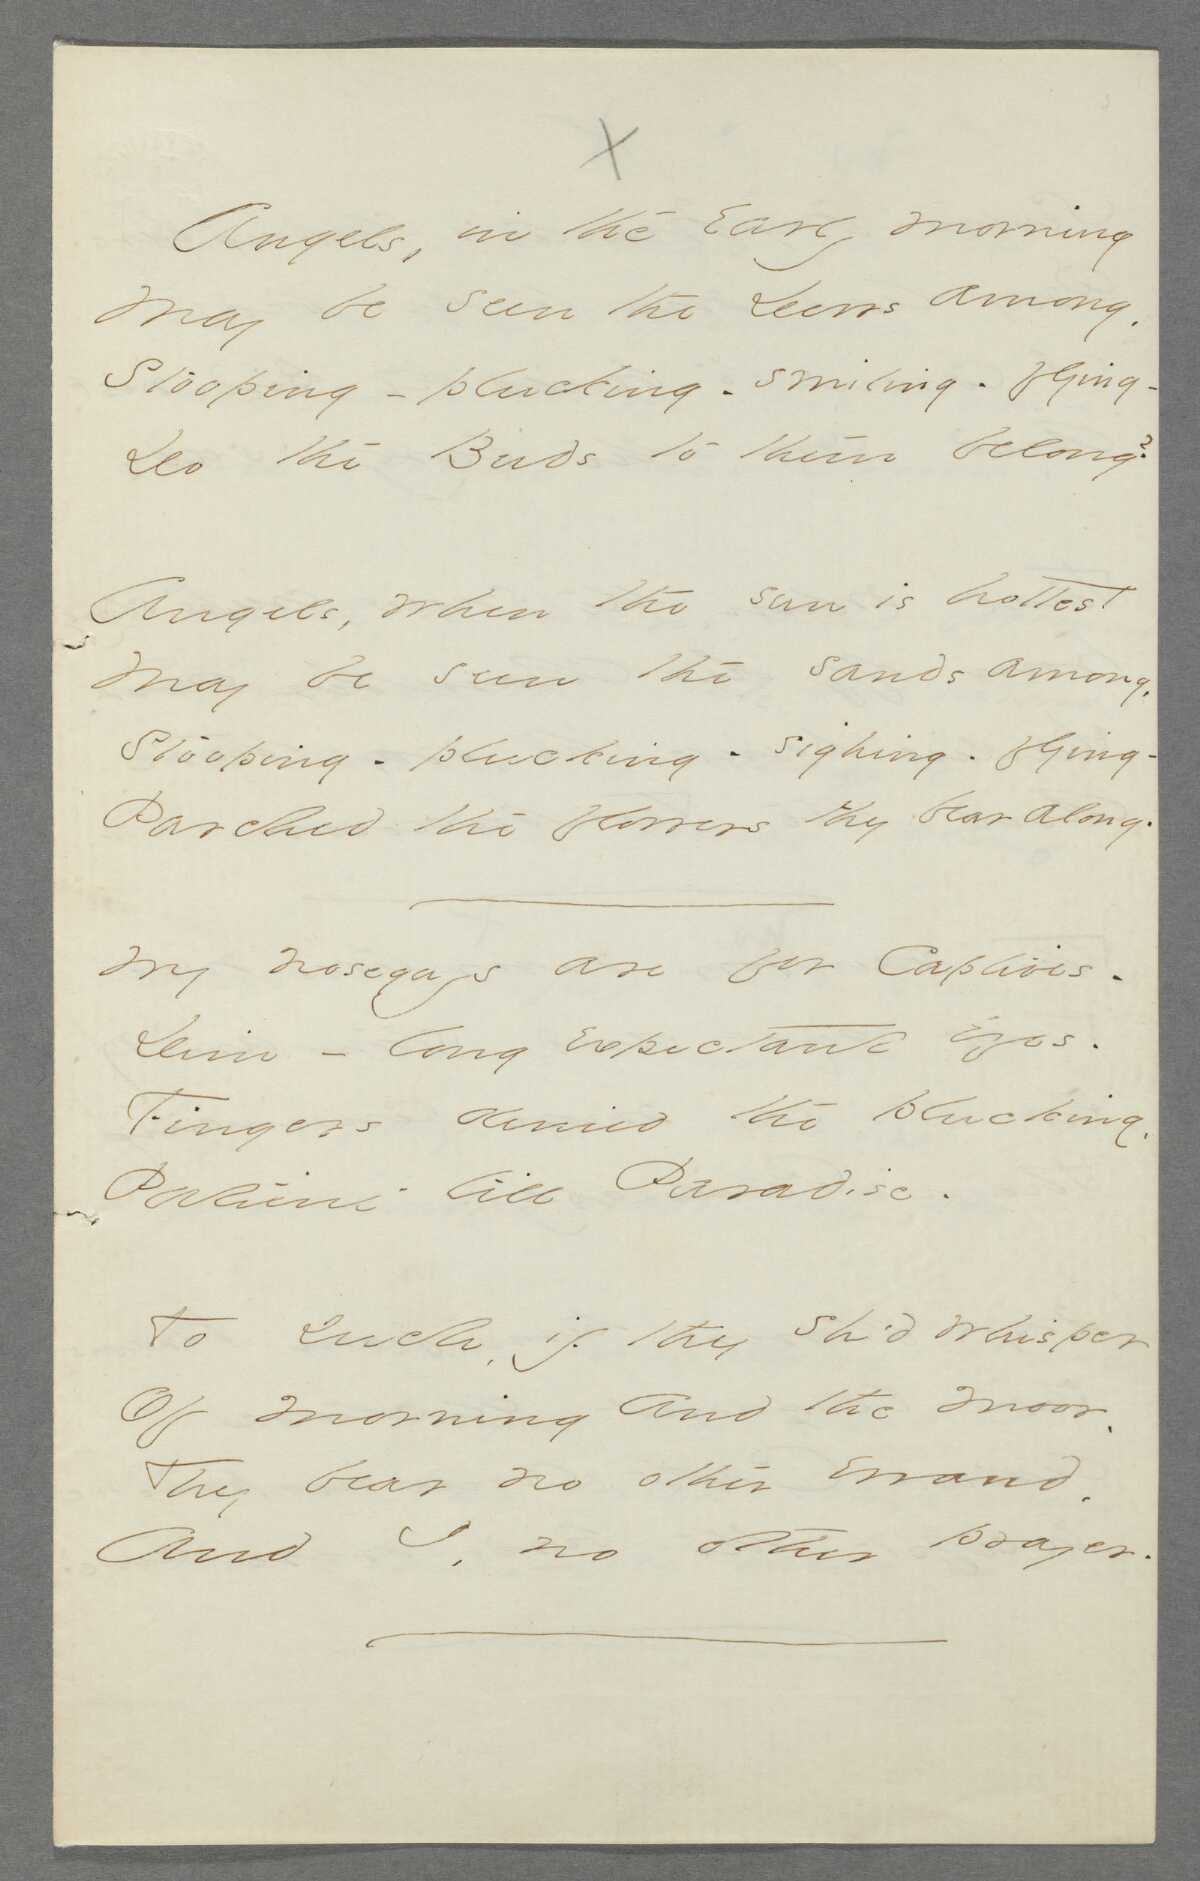 X
Angels, in the Early morning
May be seen the Dews among,
Stooping - plucking - smiling - flying -
Do the Buds to them belong?
Angels, when the sun is hottest
May be seen the sands among,
Stooping - plucking - sighing - flying -
Parched the flowers they bear along.
My nosegays are for Captives -
Dim - long expectant eyes -
Fingers denied the plucking,
Patient till Paradise -
To such, if they sh'd whisper
Of morning and the moor,
They bear no other errand,
And I, no other prayer.